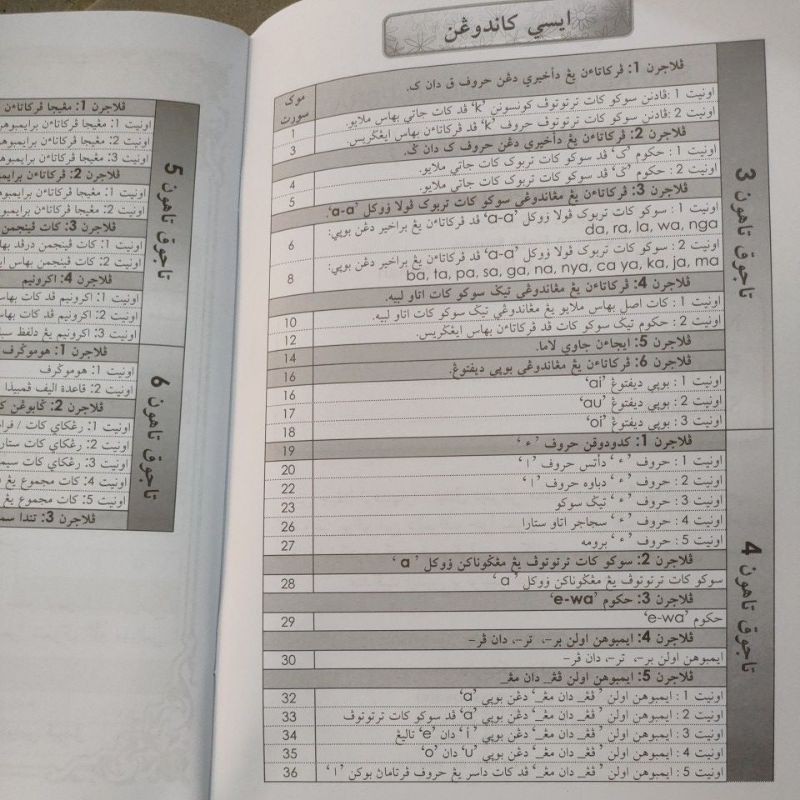 ايسي كاندوڠن
تاجوق تاهون 3
موک سورت
ڤلاجرن 1: ڤرکاتاءن يڠ دأخيري دڠن حروف ق دان ک.
اونيت 1 :ڤادنن سوکو کات ترتوتوڤ کونسونن 'k' ڤد کات جاتي بهاس ملايو. 1
اونيت 2 :ڤادنن سوکو کات ترتوتوڤ حروف 'k' ڤد ڤرکاتاءن بهاس ايڠݢريس. 3
ڤلاجرن 2: ڤرکاتاءن يڠ دأخيري دڠن حروف ک دان ݢ.
اونيت 1 : حکوم 'ک' ڤد سوکو کات تربوک کات جاتي ملايو. 4
اونيت 2 : حکوم 'ݢ' ڤد سوکو کات تربوک کات جاتي ملايو. 5
ڤلاجرن 3: ڤرکاتاءن يڠ مڠاندوڠي سوکو کات تربوک ڤولا ۏوکل 'a-a'.
اونيت 1 : سوکو کات تربوک ڤولا ۏوکل 'a-a' ڤد ڤرکاتاءن يڠ براخير دڠن بوڽي: 6
da, ra, la, wa, nga
اونيت 2 : سوکو کات تربوک ڤولا ۏوکل 'a-a' ڤد ڤرکاتاءن يڠ براخير دڠن بوڽي: 8
ba, ta, pa, sa, ga, na, nya, ca ya, ka, ja, ma
ڤلاجرن 4: ڤرکاتاءن يڠ مڠاندوڠي تيݢ سوکو کات اتاو لبيه.
اونيت 1 : کات اصل بهاس ملايو يڠ مڠاندوڠي تيݢ سوکو کات اتاو لبيه. 10
اونيت 2 : حکوم تيݢ سوکو کات ڤد ڤرکاتاءن بهاس ايڠݢريس. 12
ڤلاجرن 5: ايجاءن جاوي لاما. 14
ڤلاجرن 6: ڤرکاتاءن يڠ مڠاندوڠي بوڽي ديفتوڠ. 16
اونيت 1 : بوڽي ديفتوڠ 'ai' 16
اونيت 2 : بوڽي ديفتوڠ 'au' 17
اونيت 3 : بوڽي ديفتوڠ 'oi' 18
تاجوق تاهون 4
ڤلاجرن 1: کدودوقن حروف ' ء ' 19
اونيت 1 : حروف ' ء ' دأتس حروف ' ا ' 20
اونيت 2 : حروف ' ء ' دباوه حروف ' ا ' 22
اونيت 3 : حروف ' ء ' تيݢ سوکو 23
اونيت 4 : حروف ' ء ' سجاجر اتاو ستارا 26
اونيت 5 : حروف ' ء ' برومه 27
ڤلاجرن 2: سوکو کات ترتوتوڤ يڠ مڠݢوناکن ۏوکل ' a '
سوکو کات ترتوتوڤ يڠ مڠݢوناکن ۏوکل ' a ' 28
ڤلاجرن 3: حکوم 'e-wa'
حکوم 'e-wa' 29
ڤلاجرن 4: ايمبوهن اولن بر–، تر–، دان ڤر–
ايمبوهن اولن بر–، تر–، دان ڤر– 30
ڤلاجرن 5: ايمبوهن اولن ڤڠـ دان مڠـ
اونيت 1 : ايمبوهن اولن ' ڤڠـ دان مڠـ' دڠن بوڽي 'a' 32
اونيت 2 : ايمبوهن اولن ' ڤڠـ دان مڠـ' دڠن بوڽي 'a' ڤد سوکو کات ترتوتوڤ 33
اونيت 3 : ايمبوهن اولن ' ڤڠـ دان مڠـ' دڠن بوڽي 'ا' دان 'e' تاليڠ 34
اونيت 4 : ايمبوهن اولن ' ڤڠـ دان مڠـ' دڠن بوڽي 'u' دان 'o' 35
اونيت 5 : ايمبوهن اولن ' ڤڠـ دان مڠـ' ڤد کات داسر يڠ حروف ڤرتامان بوکن ' ا ' 36
تاجوق تاهون 5
ڤلاجرن 1: مڠيجا ڤرکاتاءن
اونيت 1: مڠيجا ڤرکاتاءن
اونيت 2: مڠيجا ڤرکاتاءن برايمبوهن
اونيت 3: مڠيجا ڤرکاتاءن
ڤلاجرن 2: ڤرکاتاءن
اونيت 1: مڠيجا ڤرکاتاءن
اونيت 2: مڠيجا ڤرکاتاءن
ڤلاجرن 3: کات ڤينجمن
اونيت 1: کات ڤينجمن درڤد
اونيت 2: کات ڤينجمن بهاس
ڤلاجرن 4: اکرونيم
اونيت 1: اکرونيم ڤد کات
اونيت 2: اکرونيم ڤد کات
اونيت 3: اکرونيم يڠ دلفظ
تاجوق تاهون 6
ڤلاجرن 1: هوموݢرف
اونيت 1: هوموݢرف
اونيت 2: قاعدة اليف ڤمبيذا
ڤلاجرن 2: ݢابوڠن
اونيت 1: رڠکاي کات /
اونيت 2: رڠکاي کات ستارا
اونيت 3: رڠکاي کات
اونيت 4: کات مجموع يڠ
اونيت 5: کات مجموع يڠ
ڤلاجرن 3: تندا